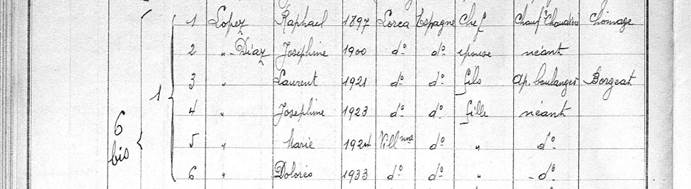 1 Lopez Raphael 1897 Lorca Espagne Chef Chauf Chaudière Chômage
2 " Diaz Josephine 1900 do do épouse néant
3 " Laurent 1921 do do fils ap. boulanger Borgeat
1 4 " Josephine 1923 do do fille néant
6 bis 5 " Marie 1924 Vill do " do
6 " Dolorès 1933 do do " do